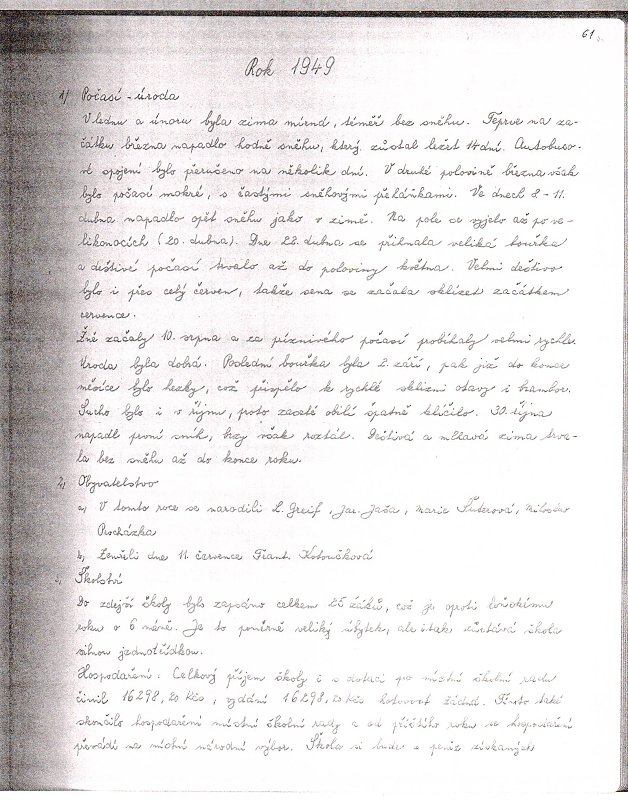 61
Rok 1949
1) Počasí - úroda
V lednu a únoru byla zima mírná, téměř bez sněhu. Teprve na za-
čátku března napadlo hodně sněhu, který zůstal ležet 14 dní. Autobuso-
vé spojení bylo přerušeno na několik dní. V druhé polovině března však
bylo počasí mokré, s častými sněhovými přeháňkami. Ve dnech 8 - 11.
dubna napadlo opět sněhu jako v zimě. Na pole se vyjelo až po ve-
likonocích (20. dubna). Dne 22. dubna se přihnala veliká bouřka
a deštivé počasí trvalo až do poloviny května. Velmi deštivo
bylo i přes celý červen, takže sena se začala sklízet začátkem
července.
Žně začaly 10. srpna a za příznivého počasí probíhaly velmi rychle.
Úroda byla dobrá. Poslední bouřka byla 2. září, pak již do konce
měsíce bylo hezky, což přispělo k rychlé sklizni otavy i brambor.
Sucho bylo i v říjnu, proto zaseté obilí špatně klíčilo. 30. října
napadl první sníh, brzy však roztál. Deštivá a mlhavá zima trva-
la bez sněhu až do konce roku.
2) Obyvatelstvo
a) V tomto roce se narodili L. Greif, Jar. Jaša, Marie Šuterová, Miloslav
Procházka
b) Zemřeli dne 11. července Frant. Kotoučková
3) Školství
Do zdejší školy bylo zapsáno celkem 25 žáků, což je oproti loňskému
roku o 6 méně. Je to poměrně veliký úbytek, ale i tak zůstává škola
silnou jednotřídkou.
Hospodaření: Celkový příjem školy i s dotací pro místní školní radu
činil 16298,20 Kčs, vydání 16298,20 Kčs hotovost žádná. Tímto také
skončilo hospodaření místní školní rady a od příštího roku se hospodaření
převádí na místní národní výbor. Škola si bude z peněz získaných